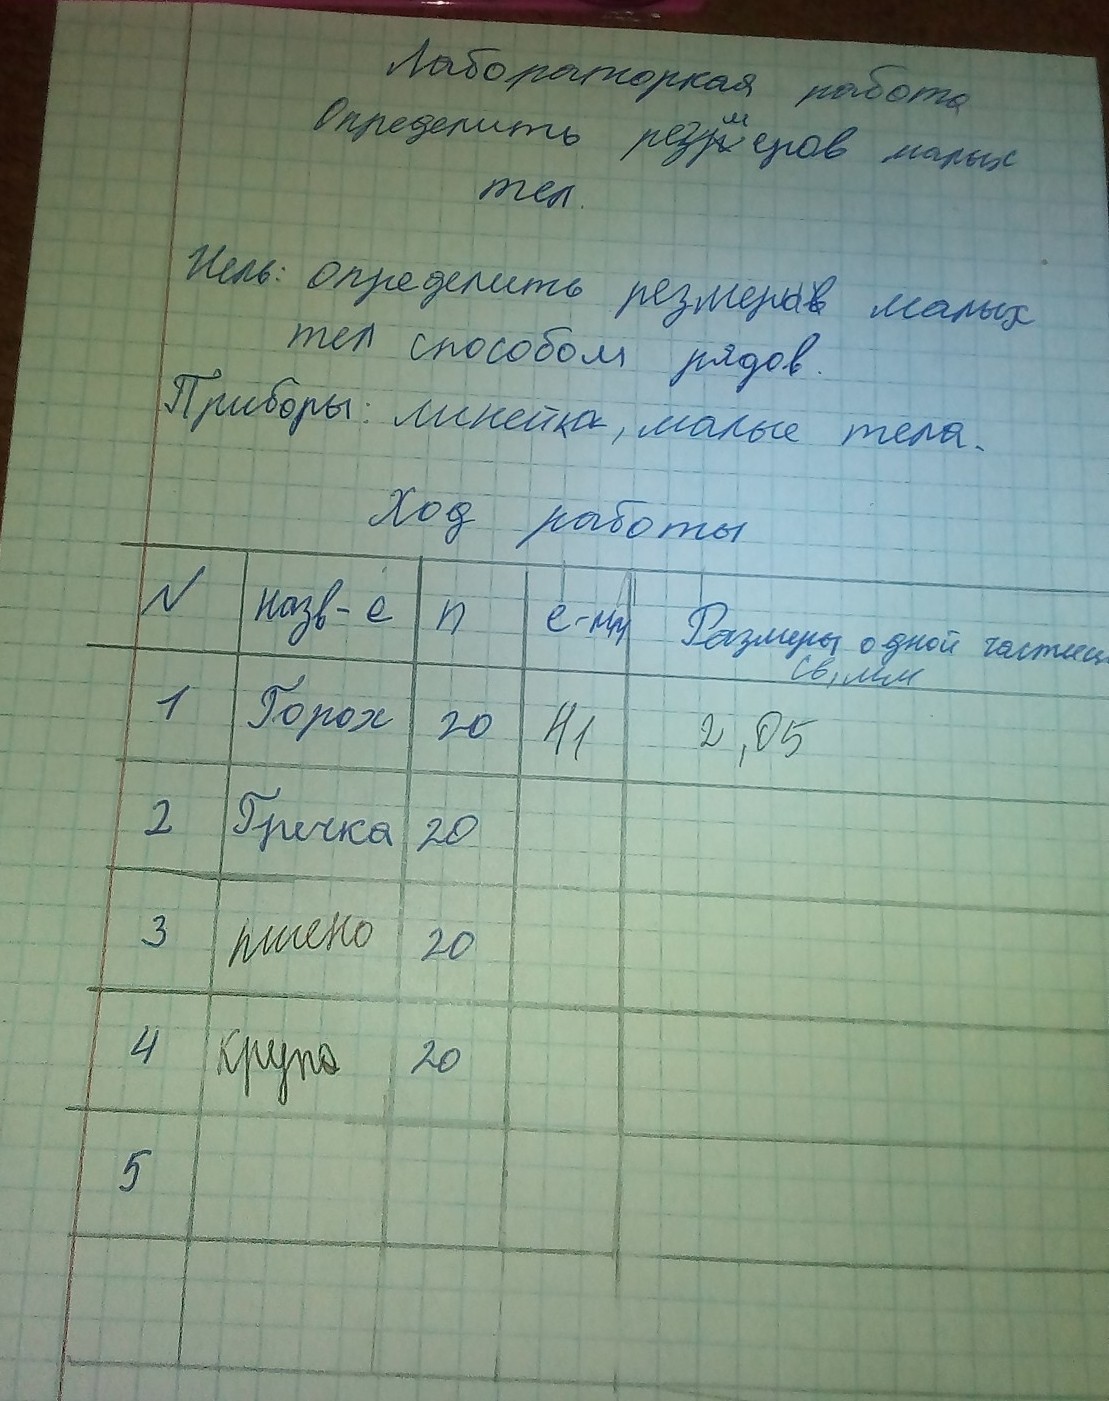 Лабораторная работа
Определить резмеров малых
тел.
Цель: определить резмеров малых
тел способом рядов.
Приборы: линейка, малые тела.
Ход работы
N назв-е n е-мм Размеры одной частицы
св, мм
1 Горох 20 41 2,05
2 Гречка 20
3 пшено 20
4 крупа 20
5